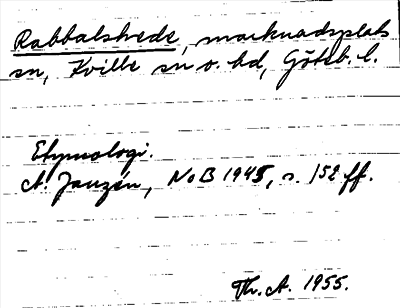 Rabbalshede, marknadsplats
sn, Kville sn o. hd, Göteb. l.
Etymologi.
A. Janzén, NoB 1945, s. 152 ff.
Th. A. 1955.